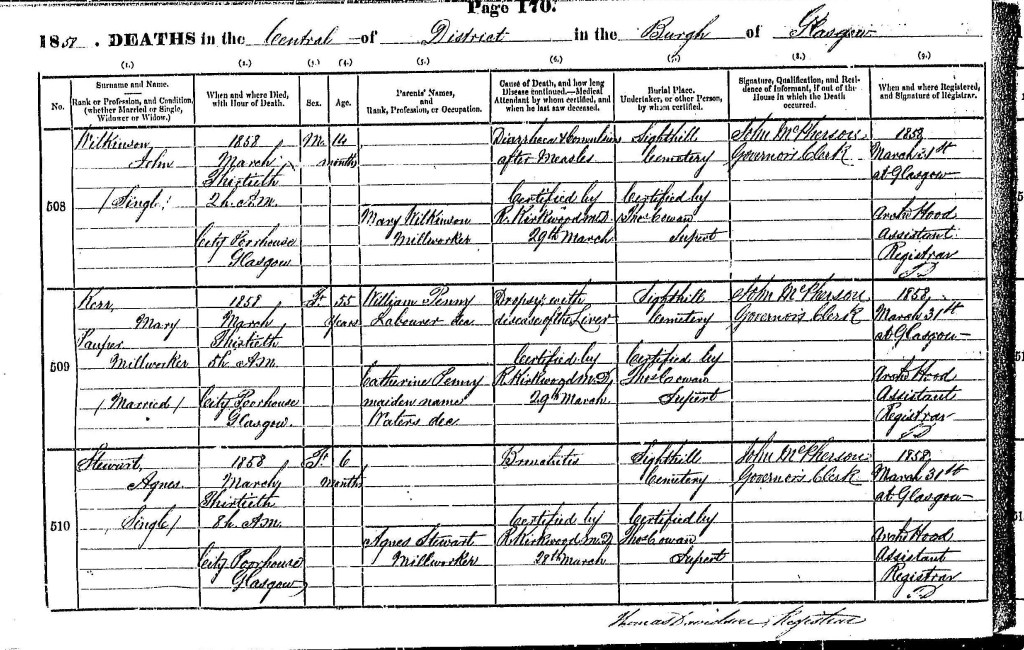 Page 170.
1858. DEATHS in the Central of District in the Burgh of Glasgow
(1.) (2.) (3.) (4.) (5.) (6.) (7.) (8.) (9.)
No.
Surname and Name.
Rank or Profession, and Condition,
(whether Married or Single,
Widower or Widow.)
When and where Died,
with Hour of Death.
Sex.
Age.
Parents' Names,
and
Rank, Profession, or Occupation.
Cause of Death, and how long
Disease continued.—Medical
Attendant by whom certified, and
when he last saw deceased.
Burial Place.
Undertaker, or other Person,
by whom certified.
Signature, Qualification, and Resi-
dence of Informant, if out of the
House in which the Death
occurred.
When and where Registered,
and Signature of Registrar.
508
Wilkinson,
John
(Single)
1858
March
Thirtieth
2h. A.M.
City Poorhouse
Glasgow
M.
14
months
Mary Wilkinson
Millworker
Diarrhoea & Convulsions
after Measles
Certified by
R. Kirkwood M.D.
29th March
Sighthill
Cemetery
Certified by
Thos Cowan
Supert
John McPherson
Governor's Clerk
1858
March 31st
at Glasgow
Archd Hood
Assistant
Registrar
509
Kerr,
Mary
Pauper
Millworker
(Married)
1858
March
Thirtieth
5h. A.M.
City Poorhouse
Glasgow.
F.
55
Years
William Penny
Labourer dec.
Catherine Penny
maiden name
Waters dec.
Dropsy with
disease of the Liver
Certified by
R. Kirkwood M.D.
29th March
Sighthill
Cemetery
Certified by
Thos Cowan
Supert
John McPherson
Governor's Clerk
1858,
March 31st
at Glasgow
Archd Hood
Assistant
Registrar
510
Stewart,
Agnes
(Single)
1858
March
Thirtieth
8h. A.M.
City Poorhouse
Glasgow
F.
6
months
Agnes Stewart
Millworker
Bronchites
Certified by
R. Kirkwood M.D.
28th March
Sighthill
Cemetery
Certified by
Thos Cowan
Supert
John McPherson
Governor's Clerk
1858,
March 31st
at Glasgow
Archd Hood
Assistant
Registrar
Thomas Davidson, Registrar